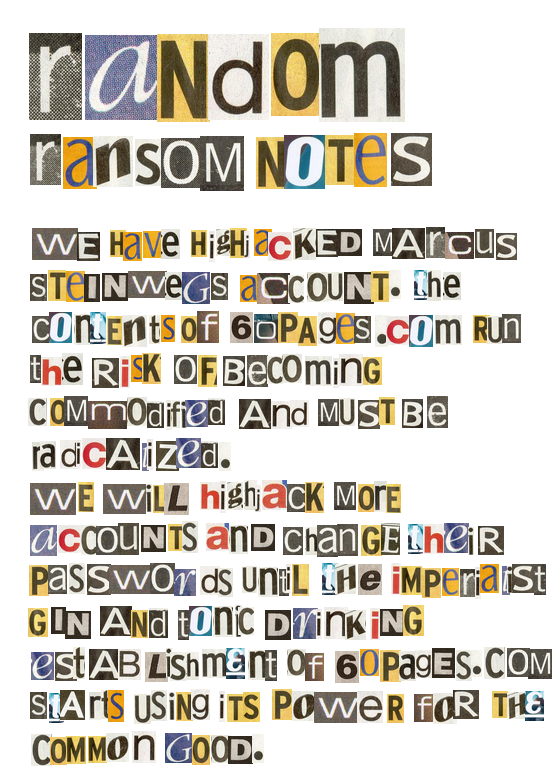 raNdom
ransOM NOTeS
WE Have HigHjacKED MArcus
STeINweGs accOUNT. the
contents of 60PAges.com RUN
the RisK OF Becoming
COMmOdified And MUST Be
radicAlized.
WE WiLL highjacK MORE
accOUNTS aND chanGE theiR
PasSwOrds Until the iMPerialist
GIN ANd tonic DrinKiNG
estABLishmEnt Of 60PagES.COM
StArtS USiNg iTS POWeR foR THE
COMMOn GOOD.